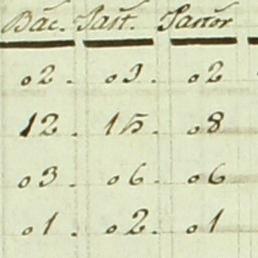 Bác. Past. Pastor
02. 03. 02
12. 15. 08
03. 06. 06
01. 02. 01